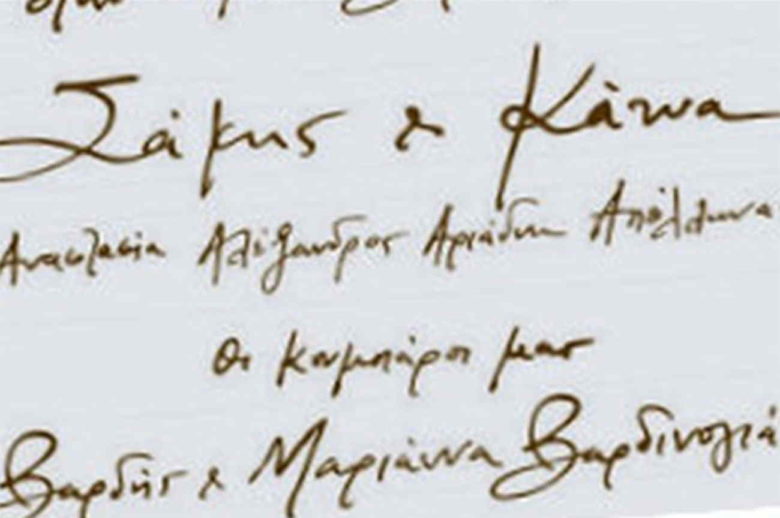 Σάκης & Κάτια
Αναστασία Αλέξανδρος Αριάδνη Απόλλωνα
Οι κουμπάροι μας
Βαρδής & Μαριάννα Βαρδινογιά